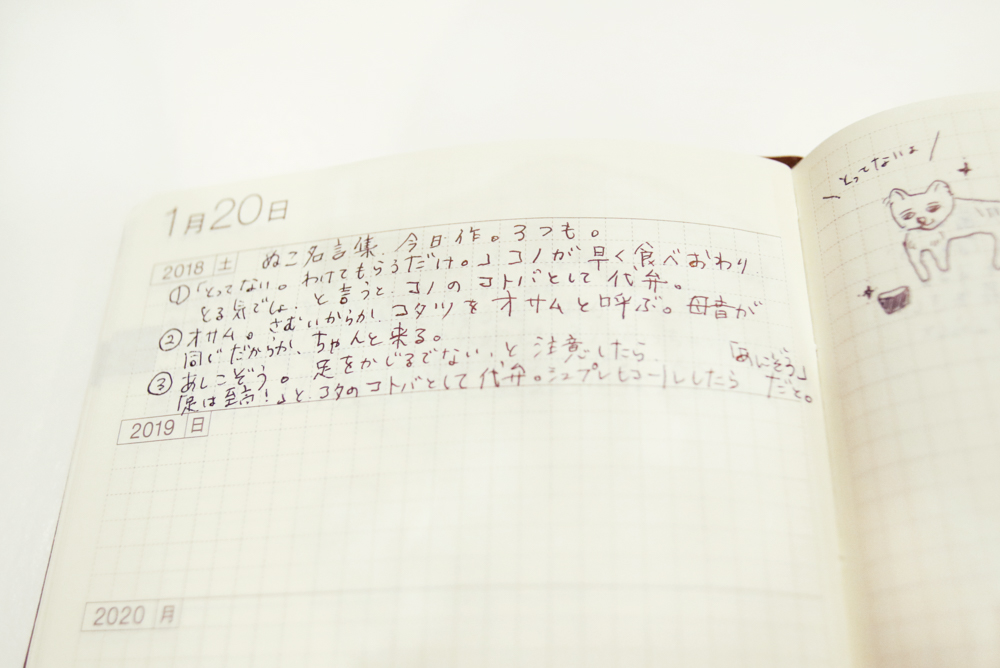 1月20日
2018 土
ぬこ名言集 今日作。3つも。
①「とってない。わけてもらうだけ。」コノが早く食べおわり
とる気でしょ と言うと、コノのコトバとして代弁。
②オサム。さむいからか、コタツをオサムと呼ぶ。母音が
同じだからか、ちゃんと来る。
③あしこぞう。足をかじるでない、と注意したら、「あしこぞう」
「足は至高!」と、コタのコトバとして代弁。シュプレヒコールしたら だと。
2019 日
2020 月
とってないよ